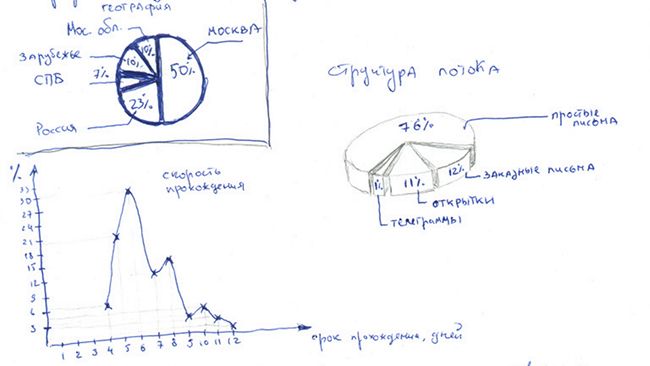 география
Мос. обл.
МОСКВА
Зарубежье
СПБ
Россия
10%
10%
7%
50%
23%
СТРУКТУРА ПОТОКА
76%
простые
письма
12%
заказные письма
11%
открытки
1%
телеграммы
%
скорость
прохождения
33
30
27
24
21
18
15
12
9
6
3
1 2 3 4 5 6 7 8 9 10 11 12
срок прохождения, дней